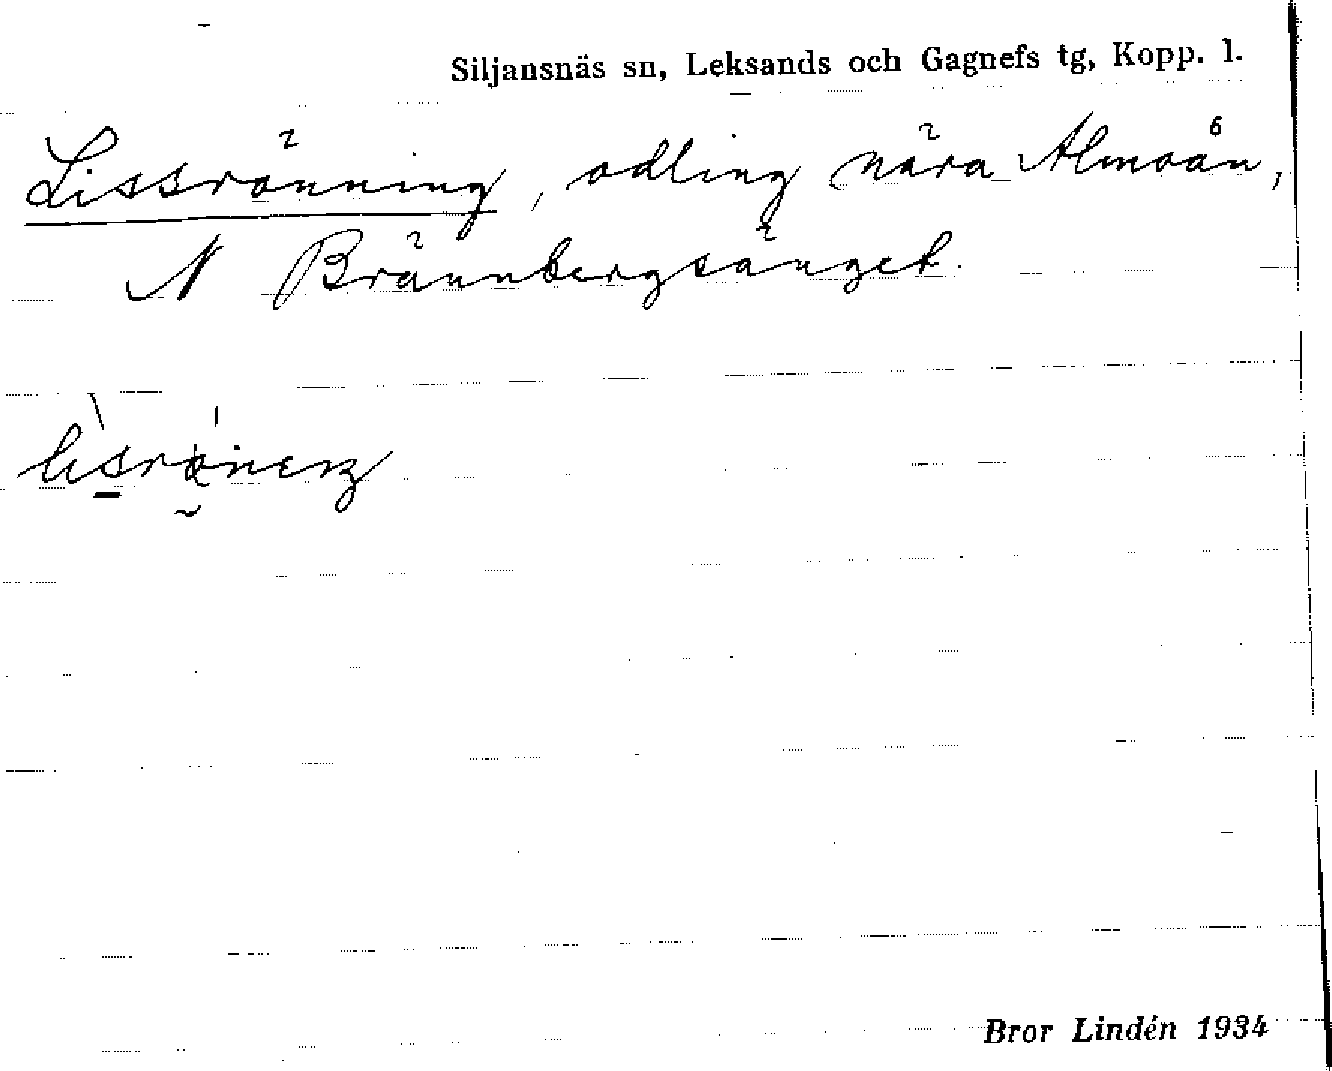 Siljansnäs sn, Leksands och Gagnefs tg, Kopp. l.
Lissränning, odling nära Almoån,
N Brännbergsänget.
Bror Lindén 1934